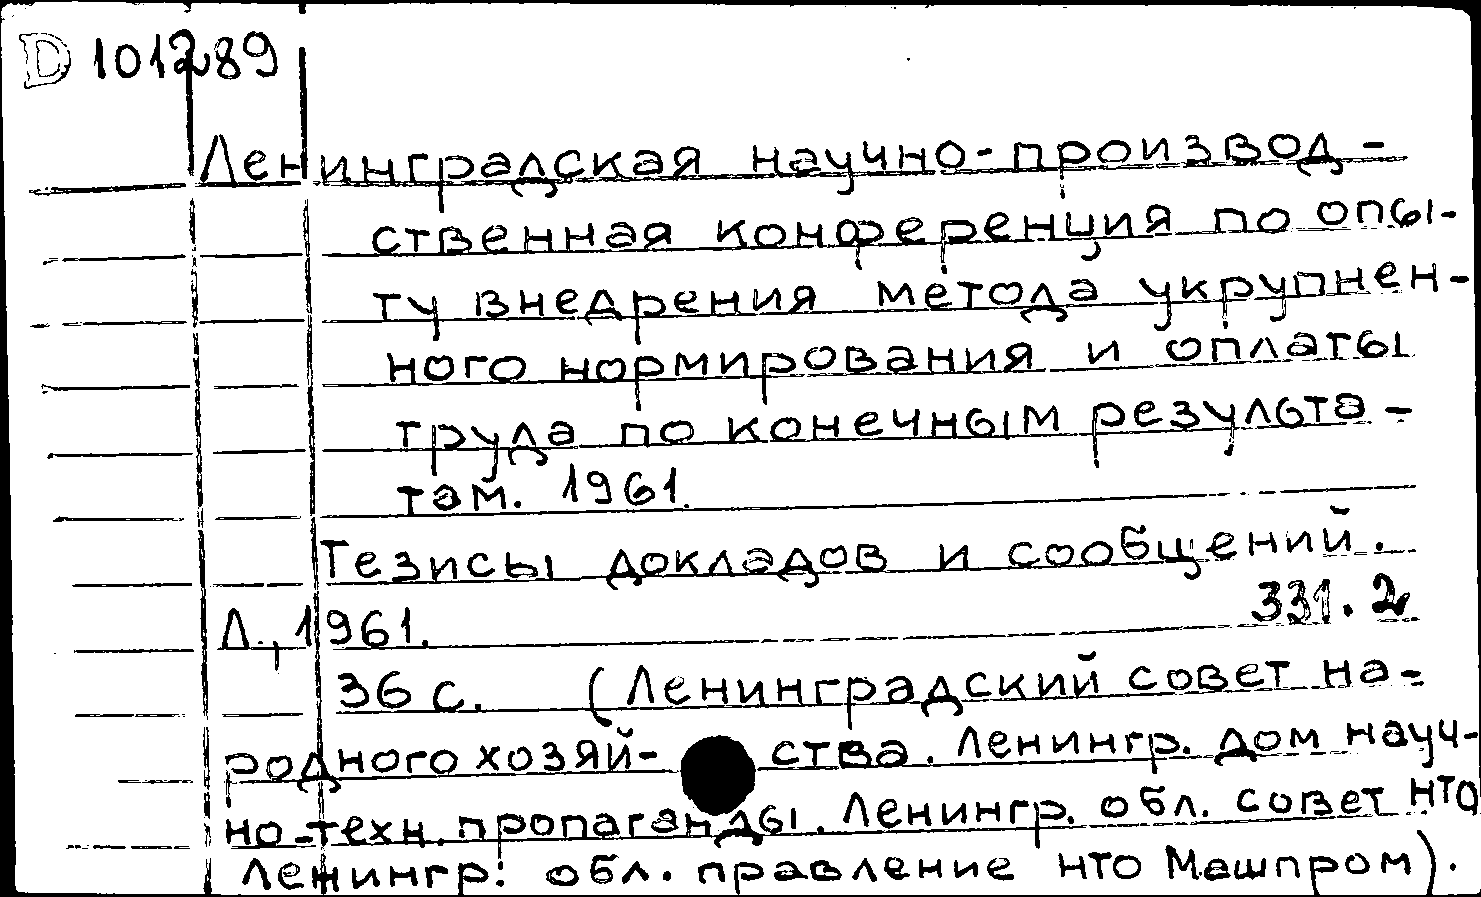 D 101289
Ленинградская научно-производ-
ственная конференция по опы-
ту внедрения метода укрупнен-
ного нормирования и оплаты
труда по конечным результа-
там. 1961.
Тезисы докладов и сообщений.
Л., 1961.
331.2
36 с. (Ленинградский совет на-
родного хозяй-ства. Ленингр. дом науч-
но-техн. пропаганды. Ленингр. обл. совет НТО
Ленингр. обл. правление НТО Машпром).